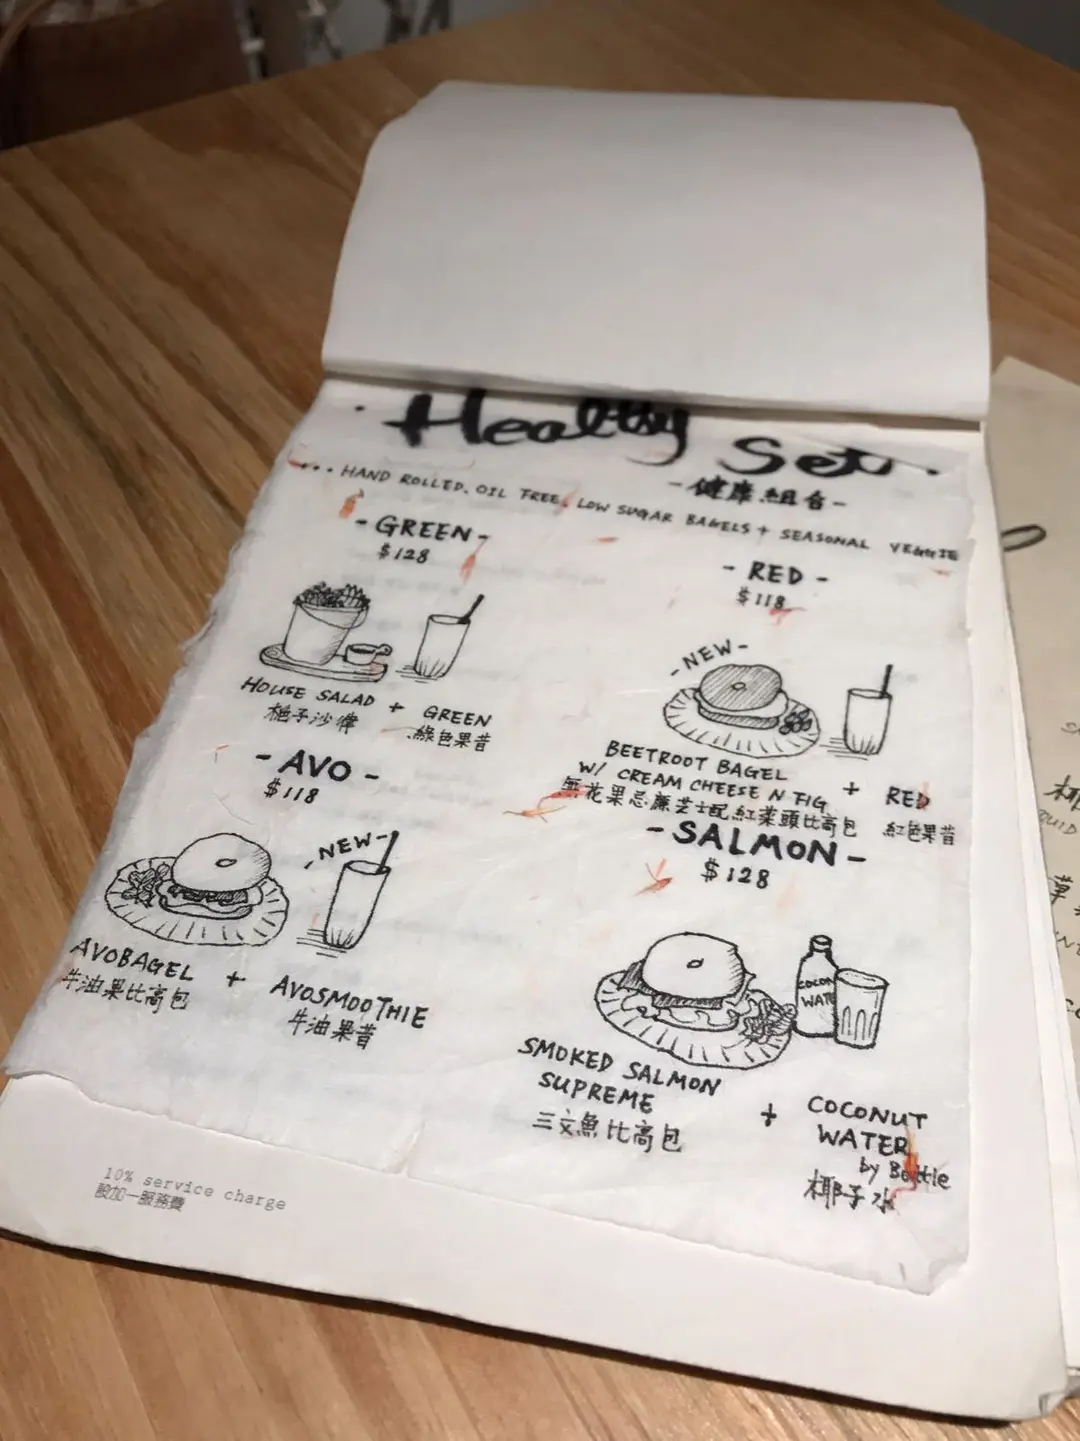 Healthy Set
-健康組合-
... HAND ROLLED, OIL FREE, LOW SUGAR BAGELS + SEASONAL VEGGIE
-GREEN-
$128
HOUSE SALAD + GREEN
桅子沙律 綠色果昔
-RED-
$118
-NEW-
BEETROOT BAGEL
W/ CREAM CHEESE N FIG + RED
無花果忌廉芝士配紅菜頭比高包 紅色果昔
-AVO-
$118
-NEW-
AVOBAGEL + AVOSMOOTHIE
牛油果比高包 牛油果昔
-SALMON-
$128
COCONUT
WATER
SMOKED SALMON
SUPREME
三文魚比高包
+
COCONUT
WATER
by Bottle
椰子水
10% service charge
設加一服務費